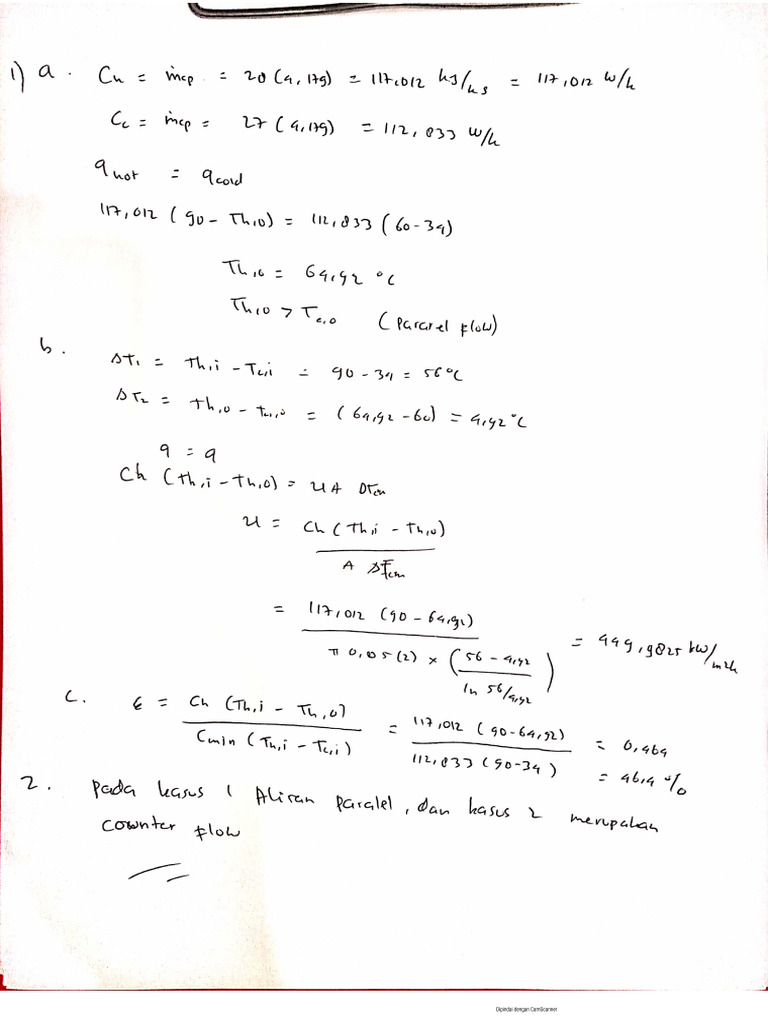 1) a. Ch = ṁcp = 28 (4,179) = 117,012 kJ/ks = 117,012 W/k
Cc = ṁcp = 27 (4,179) = 112,833 W/k
q hot = q cold
117,012 (90 - Th,o) = 112,833 (60 - 34)
Th,o = 64,92 °C
Th,o > Tc,o (Pararel flow)
b. ΔT1 = Th,i - Tc,i = 90 - 34 = 56°C
ΔT2 = Th,o - Tc,o = (64,92 - 60) = 4,92°C
q = q
Ch (Th,i - Th,o) = U A ΔTlm
U = Ch (Th,i - Th,o) / A ΔTlm
= 117,012 (90 - 64,92) / π 0,05 (2) × (56 - 4,92 / ln 56/4,92) = 449,9825 kW/m2k
c. ε = Ch (Th,i - Th,o) / Cmin (Th,i - Tc,i) = 117,012 (90 - 64,92) / 112,833 (90 - 34) = 0,464
= 46,4 %
2. Pada kasus 1 Aliran paralel, dan kasus 2 merupakan
cownter flow
Dipindai dengan CamScanner